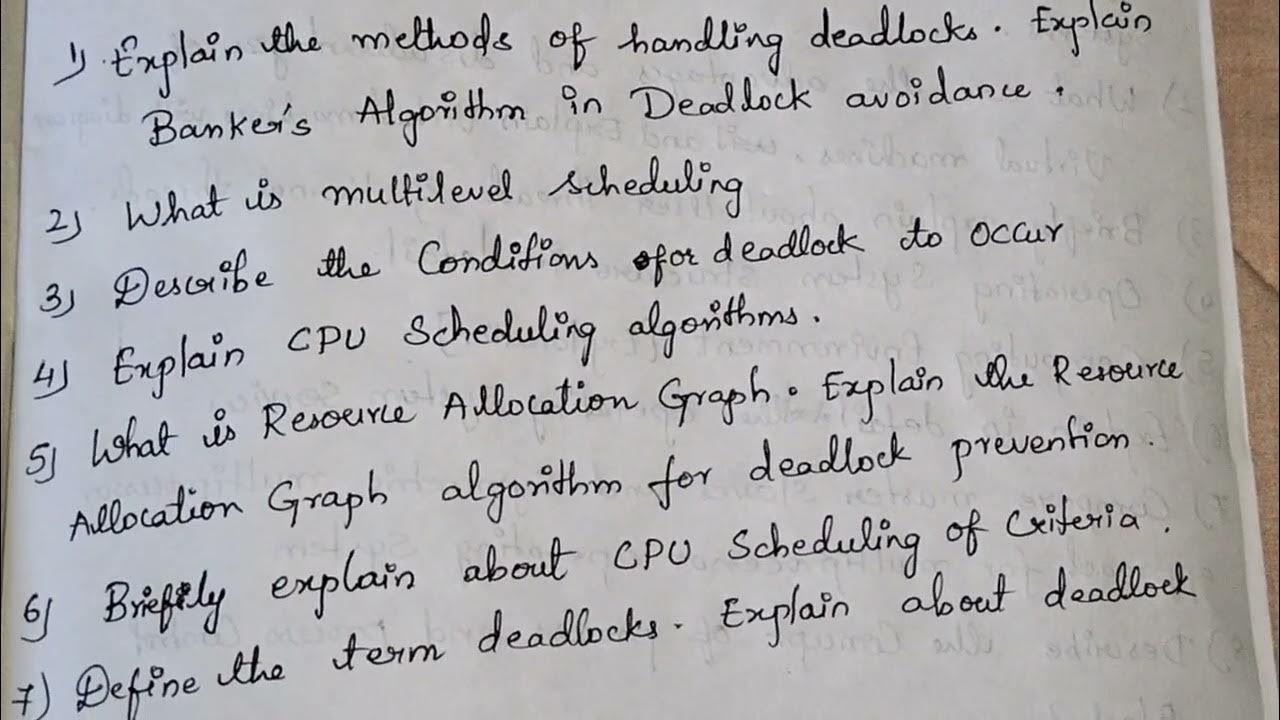 1) Explain the methods of handling deadlocks. Explain
Banker's Algorithm in Deadlock avoidance.
2) What is multilevel scheduling
3) Describe the Conditions for deadlock to occur
4) Explain CPU Scheduling algorithms.
5) What is Resource Allocation Graph. Explain the Resource
Allocation Graph algorithm for deadlock prevention.
6) Briefly explain about CPU Scheduling of Criteria.
7) Define the term deadlocks. Explain about deadlock